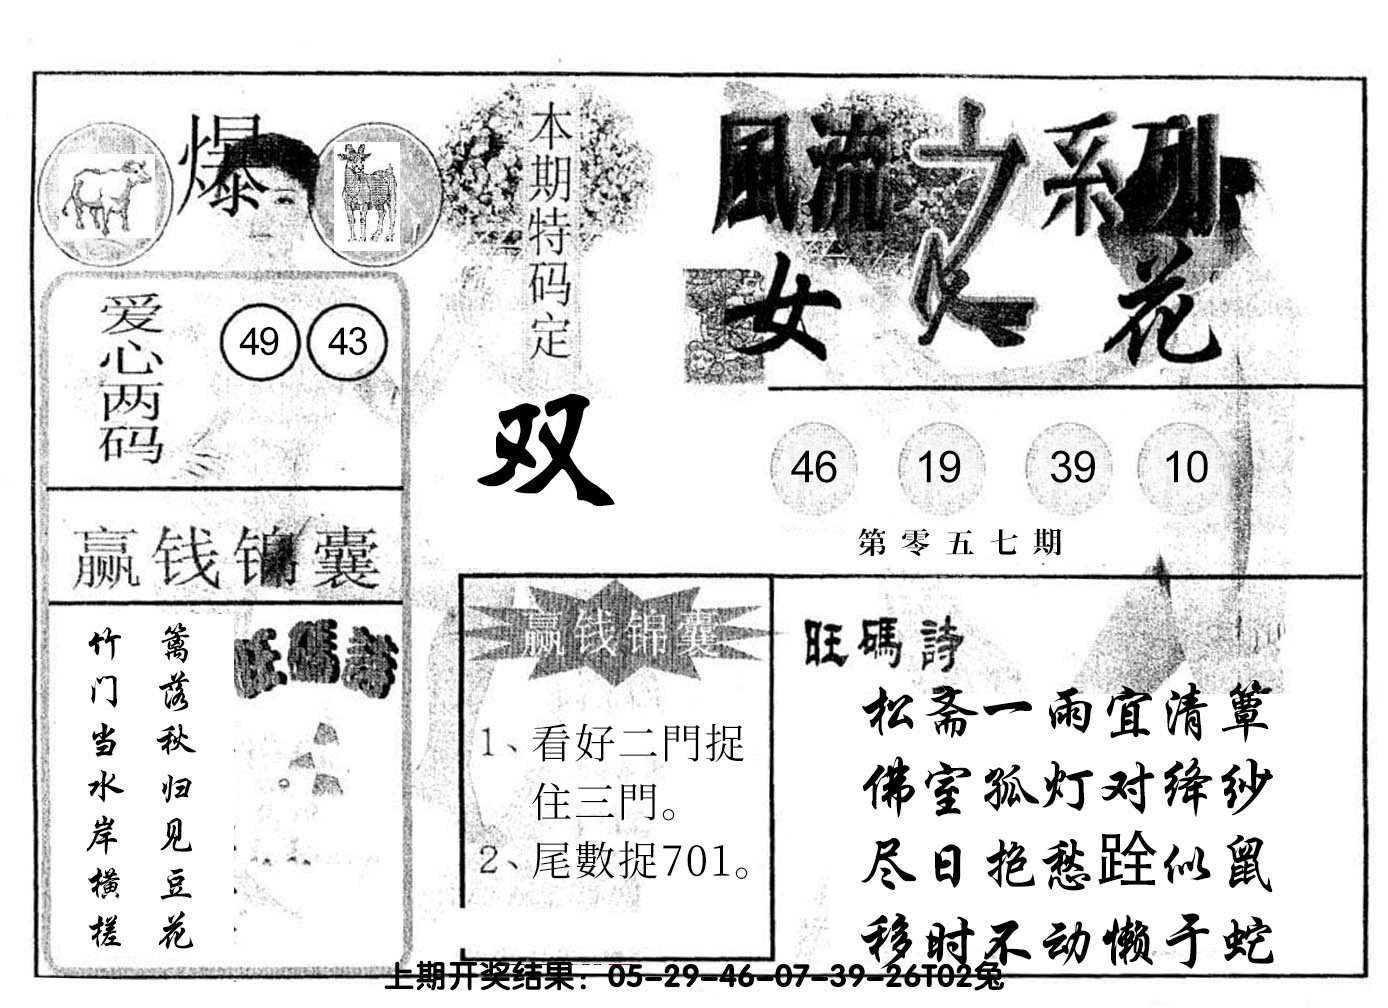 爆
本期特码定
双
風流之系列
女人花
爱心两码
49 43
46 19 39 10
第零五七期
赢钱锦囊
篱落秋归见豆花
竹门当水岸横槎
旺碼詩
赢钱锦囊
1、看好二門捉
住三門。
2、尾數捉701。
旺碼詩
松斋一雨宜清簟
佛室孤灯对绛纱
尽日抱愁跧似鼠
移时不动懒于蛇
上期开奖结果：05-29-46-07-39-26T02兔